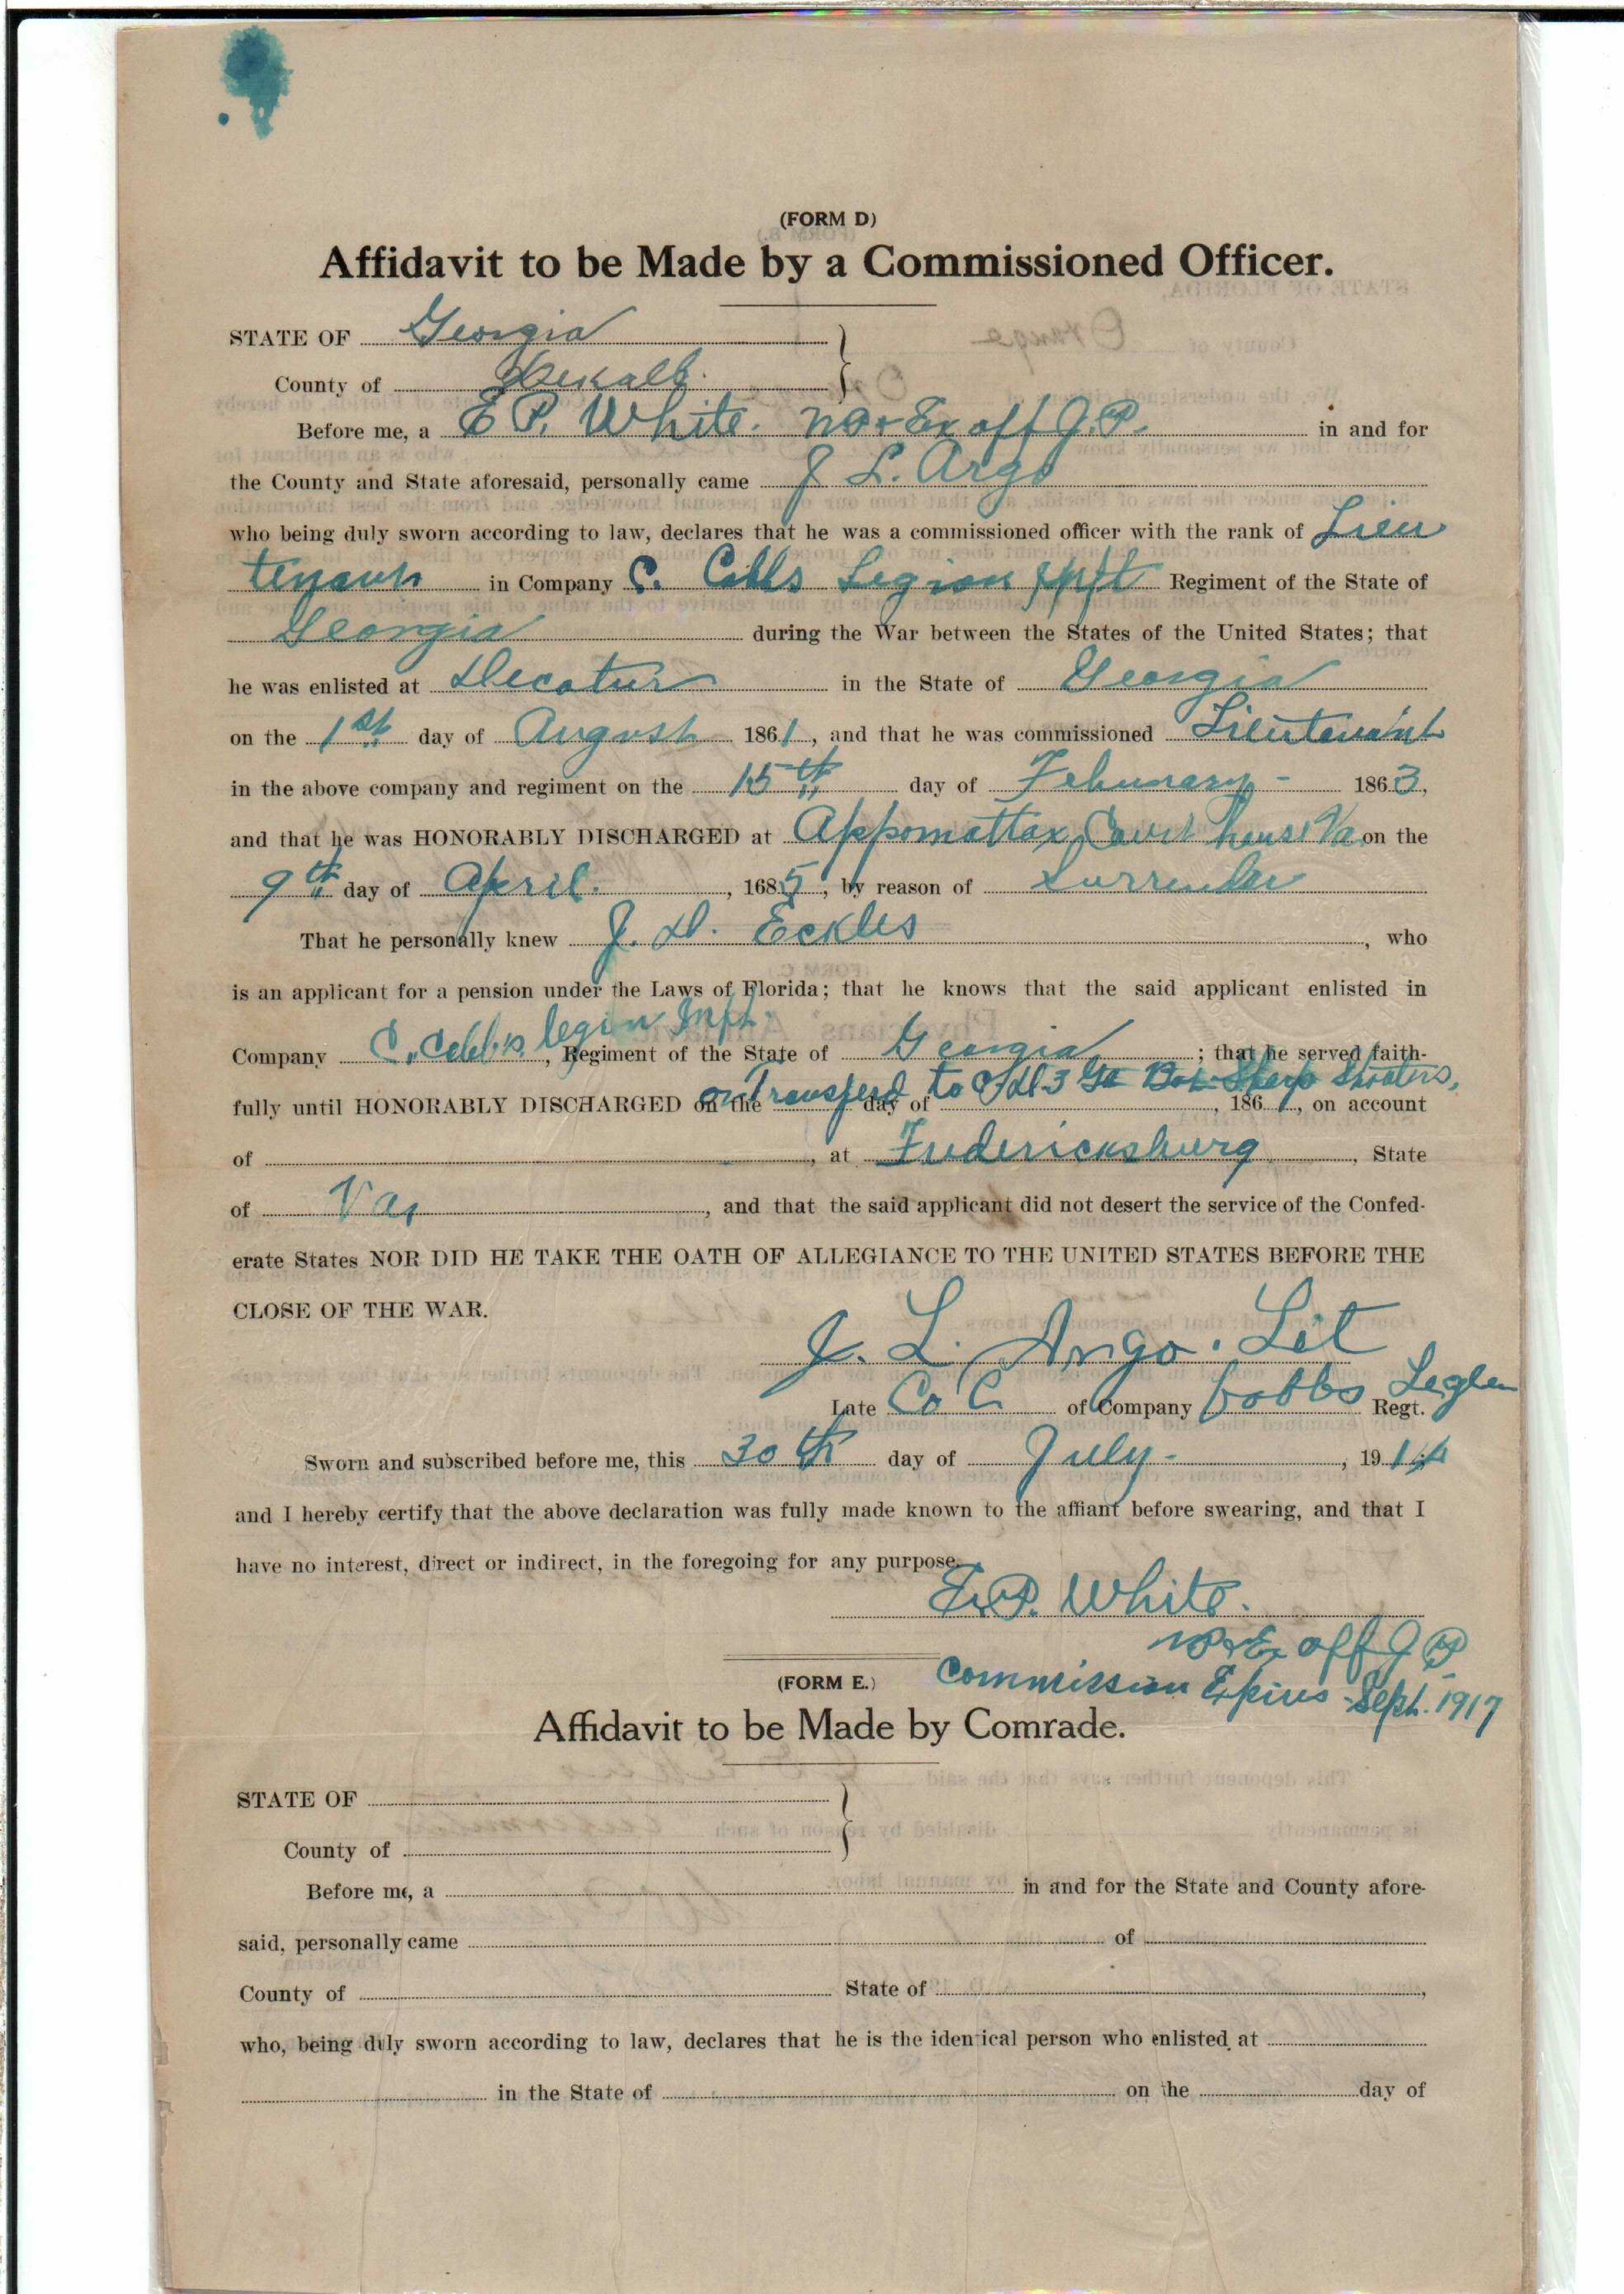 (FORM D)
Affidavit to be Made by a Commissioned Officer.
STATE OF Georgia
County of Dekalb.
Before me, a E P. White. NP + Ex off J.P. in and for
the County and State aforesaid, personally came J L. Argo
who being duly sworn according to law, declares that he was a commissioned officer with the rank of Lieu
tenant in Company C. Cobbs Legion Regiment of the State of
Georgia during the War between the States of the United States; that
he was enlisted at Decatur in the State of Georgia
on the 1st day of August 1861, and that he was commissioned Lieutenant
in the above company and regiment on the 15th day of Februnary - 1863,
and that he was HONORABLY DISCHARGED at Appomattox Court house Va on the
9th day of April. , 1685, by reason of Surrender
That he personally knew J. D. Eckles , who
is an applicant for a pension under the Laws of Florida; that he knows that the said applicant enlisted in
Company C. Cobb's legion Inft. , Regiment of the State of Georgia ; that he served faith-
fully until HONORABLY DISCHARGED on the transferd to 3 Ga Bat Sharp Shooters, day of , 186 , on account
of , at Fredericksburg , State
of Va, , and that the said applicant did not desert the service of the Confed-
erate States NOR DID HE TAKE THE OATH OF ALLEGIANCE TO THE UNITED STATES BEFORE THE
CLOSE OF THE WAR.
J. L. Argo. Lit
Late Co C of Company Cobbs Legion Regt.
Sworn and subscribed before me, this 30th day of July - , 1914
and I hereby certify that the above declaration was fully made known to the affiant before swearing, and that I
have no interest, direct or indirect, in the foregoing for any purpose.
E.P. White.
NP + Ex off J P
Commission Expires - Sept. 1917
(FORM E.)
Affidavit to be Made by Comrade.
STATE OF
County of
Before me, a in and for the State and County afore-
said, personally came of
County of State of ,
who, being duly sworn according to law, declares that he is the identical person who enlisted at
in the State of on the day of